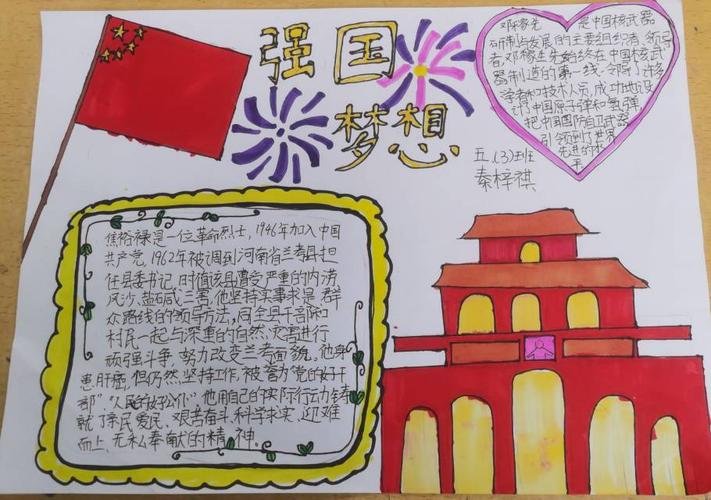 强国
梦想
邓稼先 是中国核武器
研制与发展的主要组织者、领导
者,邓稼先始终在中国核武
器制造的第一线,领导了许多
学者和技术人员,成功地设
计了中国原子弹和氢弹,
把中国国防自卫武器
引领到了世界
先进的水
平
五.(3)班
秦梓祺
焦裕禄是一位革命烈士,1946年加入中国
共产党,1962年被调到河南省兰考县担
任县委书记,时值该县遭受严重的内涝、
风沙、盐碱三害,他坚持实事求是、群
众路线的领导方法,同全县干部和
村民一起与深重的自然灾害进行
顽强斗争,努力改变兰考面貌。他身
患肝癌,但仍然坚持工作,被誉为“党的好干
部”“人民的好公仆”他用自己的实际行动铸
就了亲民爱民、艰苦奋斗、科学求实、迎难
而上、无私奉献的精神。